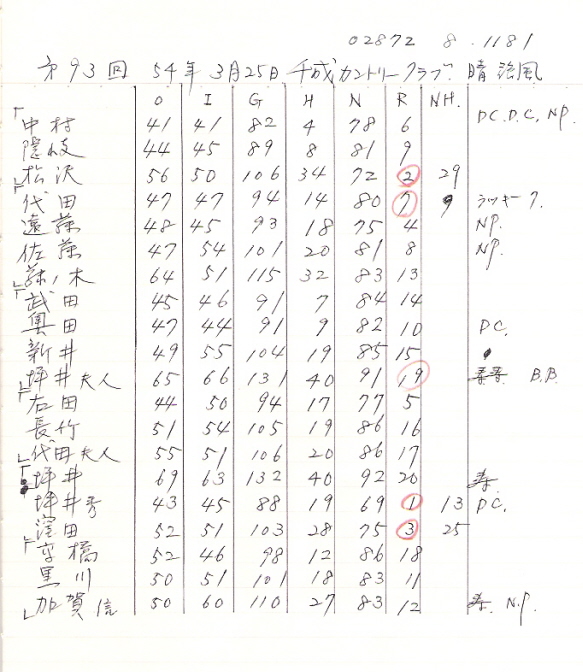 02872 8.1181
第93回 54年3月25日 千成カントリークラブ 晴 強風
O I G H N R NH.
中村 41 41 82 4 78 6 DC.D.C, NP.
隠岐 44 45 89 8 81 9
松沢 56 50 106 34 72 2 29
代田 47 47 94 14 80 7 9 ラッキー7.
遠藤 48 45 93 18 75 4 NP.
佐藤 47 54 101 20 81 8 NP.
藤ノ木 64 51 115 32 83 13
武田 45 46 91 7 84 14
奥田 47 44 91 9 82 10 DC.
新井 49 55 104 19 85 15
坪井夫人 65 66 131 40 91 19 B.B.
右田 44 50 94 17 77 5
長竹 51 54 105 19 86 16
代田夫人 55 51 106 20 86 17
坪井 69 63 132 40 92 20
坪井秀 43 45 88 19 69 1 13 DC.
窪田 52 51 103 28 75 3 25
高橋 52 46 98 12 86 18
黒川 50 51 101 18 83 11
加賀信 50 60 110 27 83 12 N.P.